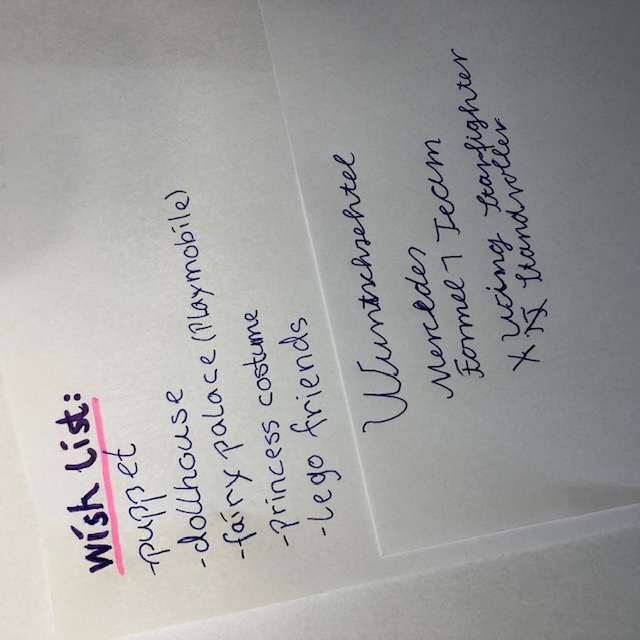 Wish List:
-puppet
-dollhouse
-fairy palace (Playmobile)
-princess costume
-Lego friends
Wuntschzehtel
Mercedes
Formel 1 Team
X Wing Starfighter
Standroller